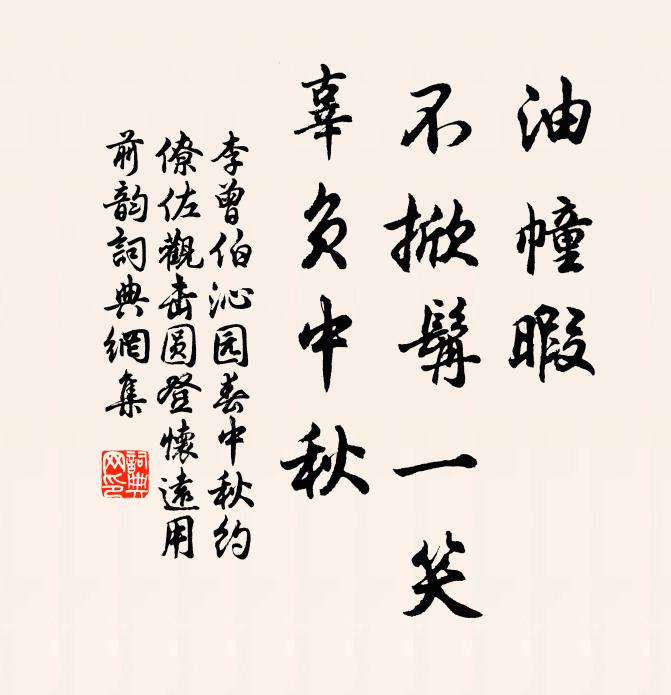 油幢暇
不掀髯一笑
辜负中秋
李曾伯沁园春中秋约
僚佐觀击圆登懷遠用
前韵詞典網集
詞典
网印